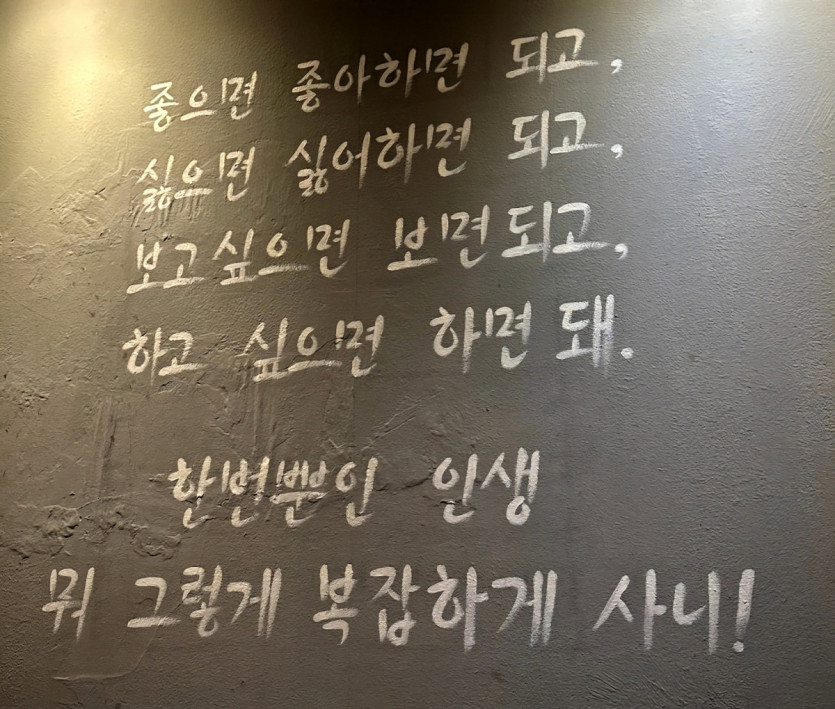 좋으면 좋아하면 되고,
싫으면 싫어하면 되고,
보고싶으면 보면되고,
하고 싶으면 하면 돼.
한번뿐인 인생
뭐 그렇게 복잡하게 사니!